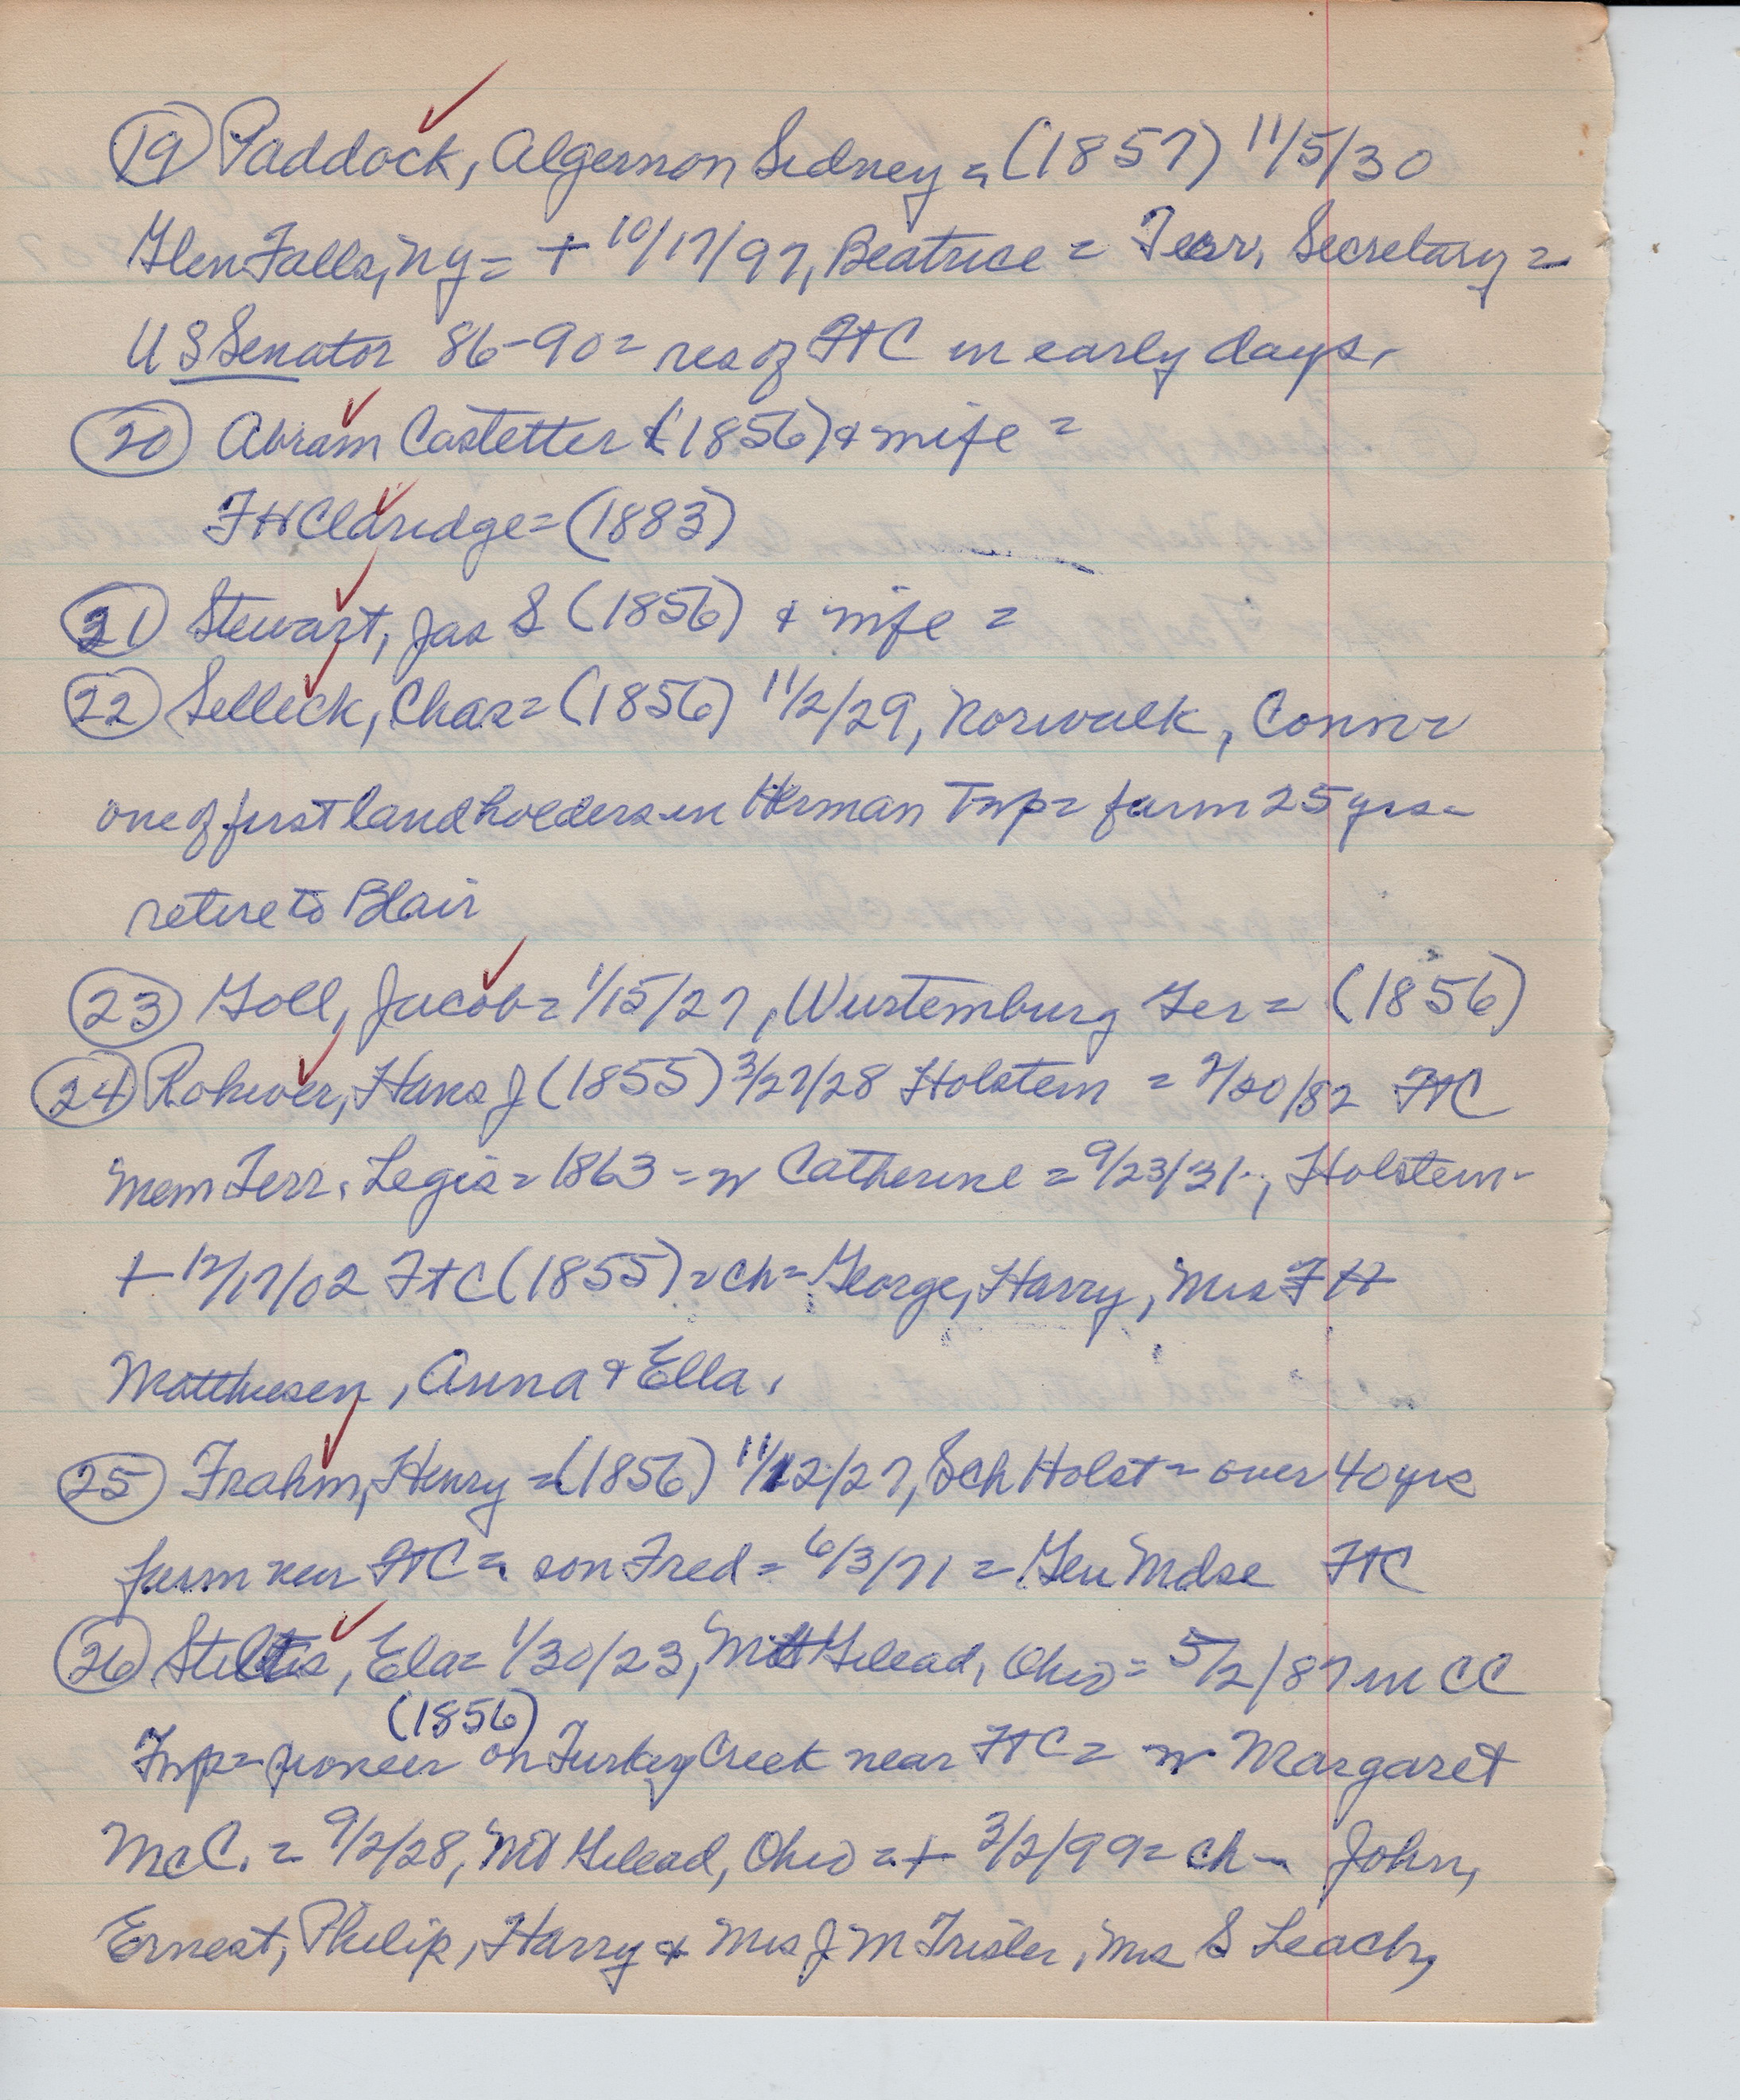 19 Paddock, Algernon Sidney = (1857) 11/5/30
Glen Falls, NY = + 10/17/97, Beatrice = Terr. Secretary =
US Senator 86-90 = res of FtC in early days.
20 Abram Castetter (1856) & wife =
FH Claridge = (1883)
21 Stewart, Jas S (1856) & wife =
22 Selleck, Chas = (1856) 11/2/29, Norwalk, Conn
one of first landholders in Herman Twp = farm 25 yrs =
retire to Blair
23 Goll, Jacob = 1/15/27, Wurtemburg Ger = (1856)
24 Rohwer, Hans J (1855) 3/27/28 Holstein = /20/82 FtC
Mem Terr. Legis = 1863 = w Catherine = 9/23/31, Holstein -
+ 12/17/02 FtC (1855) = ch = George, Harry, Mrs FH
Matthiesen, Anna & Ella.
25 Frahm, Henry = (1856) 11/12/27, Sch Holst = over 40 yrs
farm near FtC = son Fred = 6/3/71 = Gen Mdse FtC
26 Stiltis, Ela = 1/30/23, Mt Gilead, Ohio = 5/2/87 in CC
(1856)
Twp = pioneer on Turkey Creek near FtC = w Margaret
McC. = 9/2/28, Mt Gilead, Ohio = + 3/2/99 = ch - John,
Ernest, Philip, Harry & Mrs J M Trisler, Mrs S Leach,